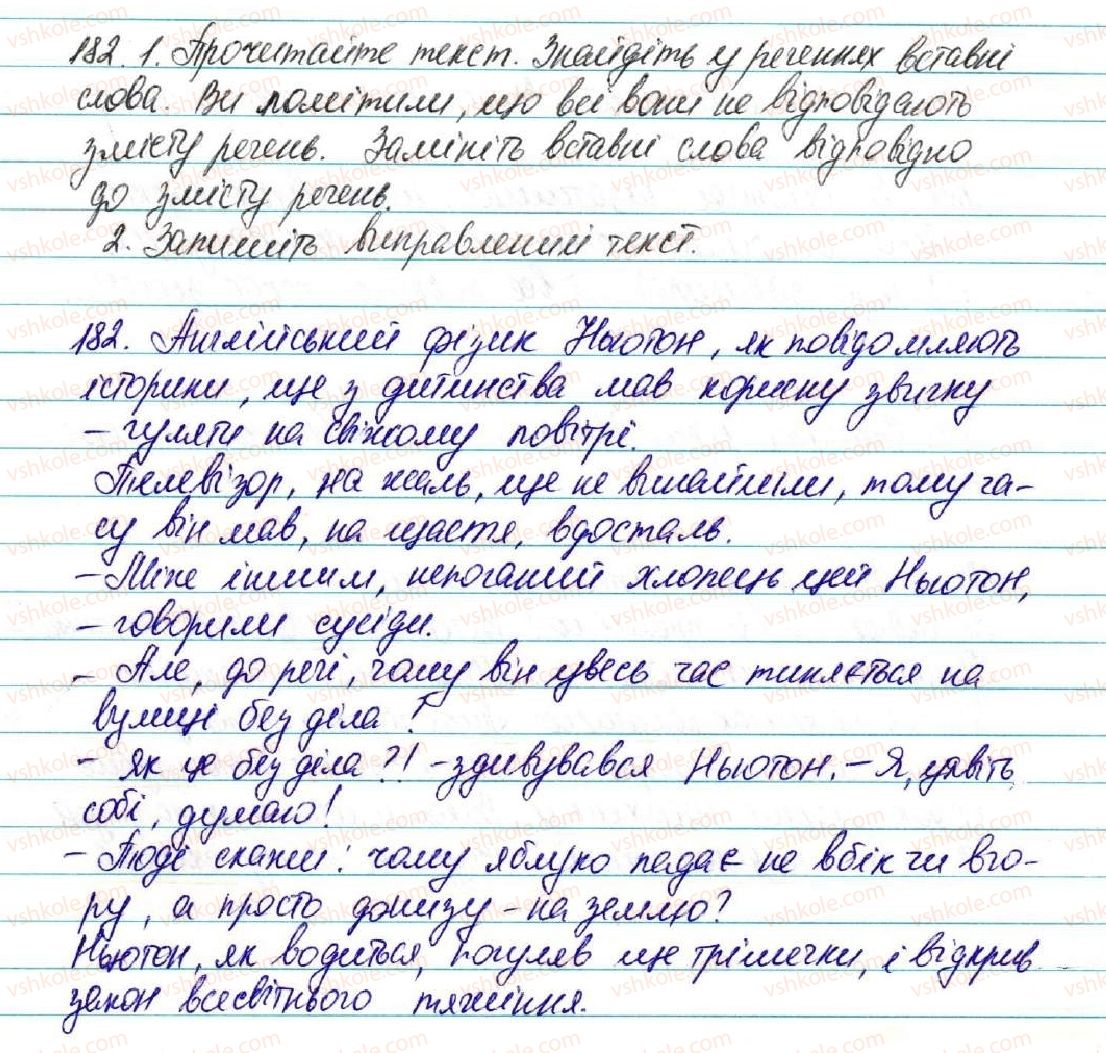 182. 1. Прочитайте текст. Знайдіть у реченнях вставні
слова. Ви помітили, що всі вони не відповідають
змісту речень. Замініть вставні слова відповідно
до змісту речень.
2. Запишіть виправлений текст.
182. Англійський фізик Ньютон, як повідомляють
історики, ще з дитинства мав корисну звичку
– гуляти на свіжому повітрі.
Телевізор, на жаль, ще не винайшли, тому ча-
су він мав, на щастя, вдосталь.
– Між іншим, непоганий хлопець цей Ньютон,
– говорили сусіди.
– Але, до речі, чому він увесь час тиняється на
вулиці без діла?
– Як це без діла?! – здивувався Ньютон. – Я, уявіть
собі, думаю!
– Тоді скажи: чому яблуко падає не вбік чи вго-
ру, а просто донизу – на землю?
Ньютон, як водиться, погуляв ще трішечки, і відкрив
закон всесвітнього тяжіння.